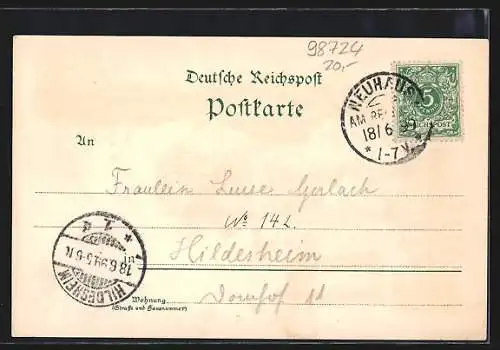 98724
20,-
Deutsche Reichspost
Postkarte
NEUHAUS
AM RE
18/6 99
* 1-7 V. *
5
REICHSPOST
An
Fräulein Luise Gerlach
No 142
in
Hildesheim
Domhof
Wohnung
(Straße und Hausnummer)
HILDESHEIM
18.6.99.5-6 N.
* 1 d